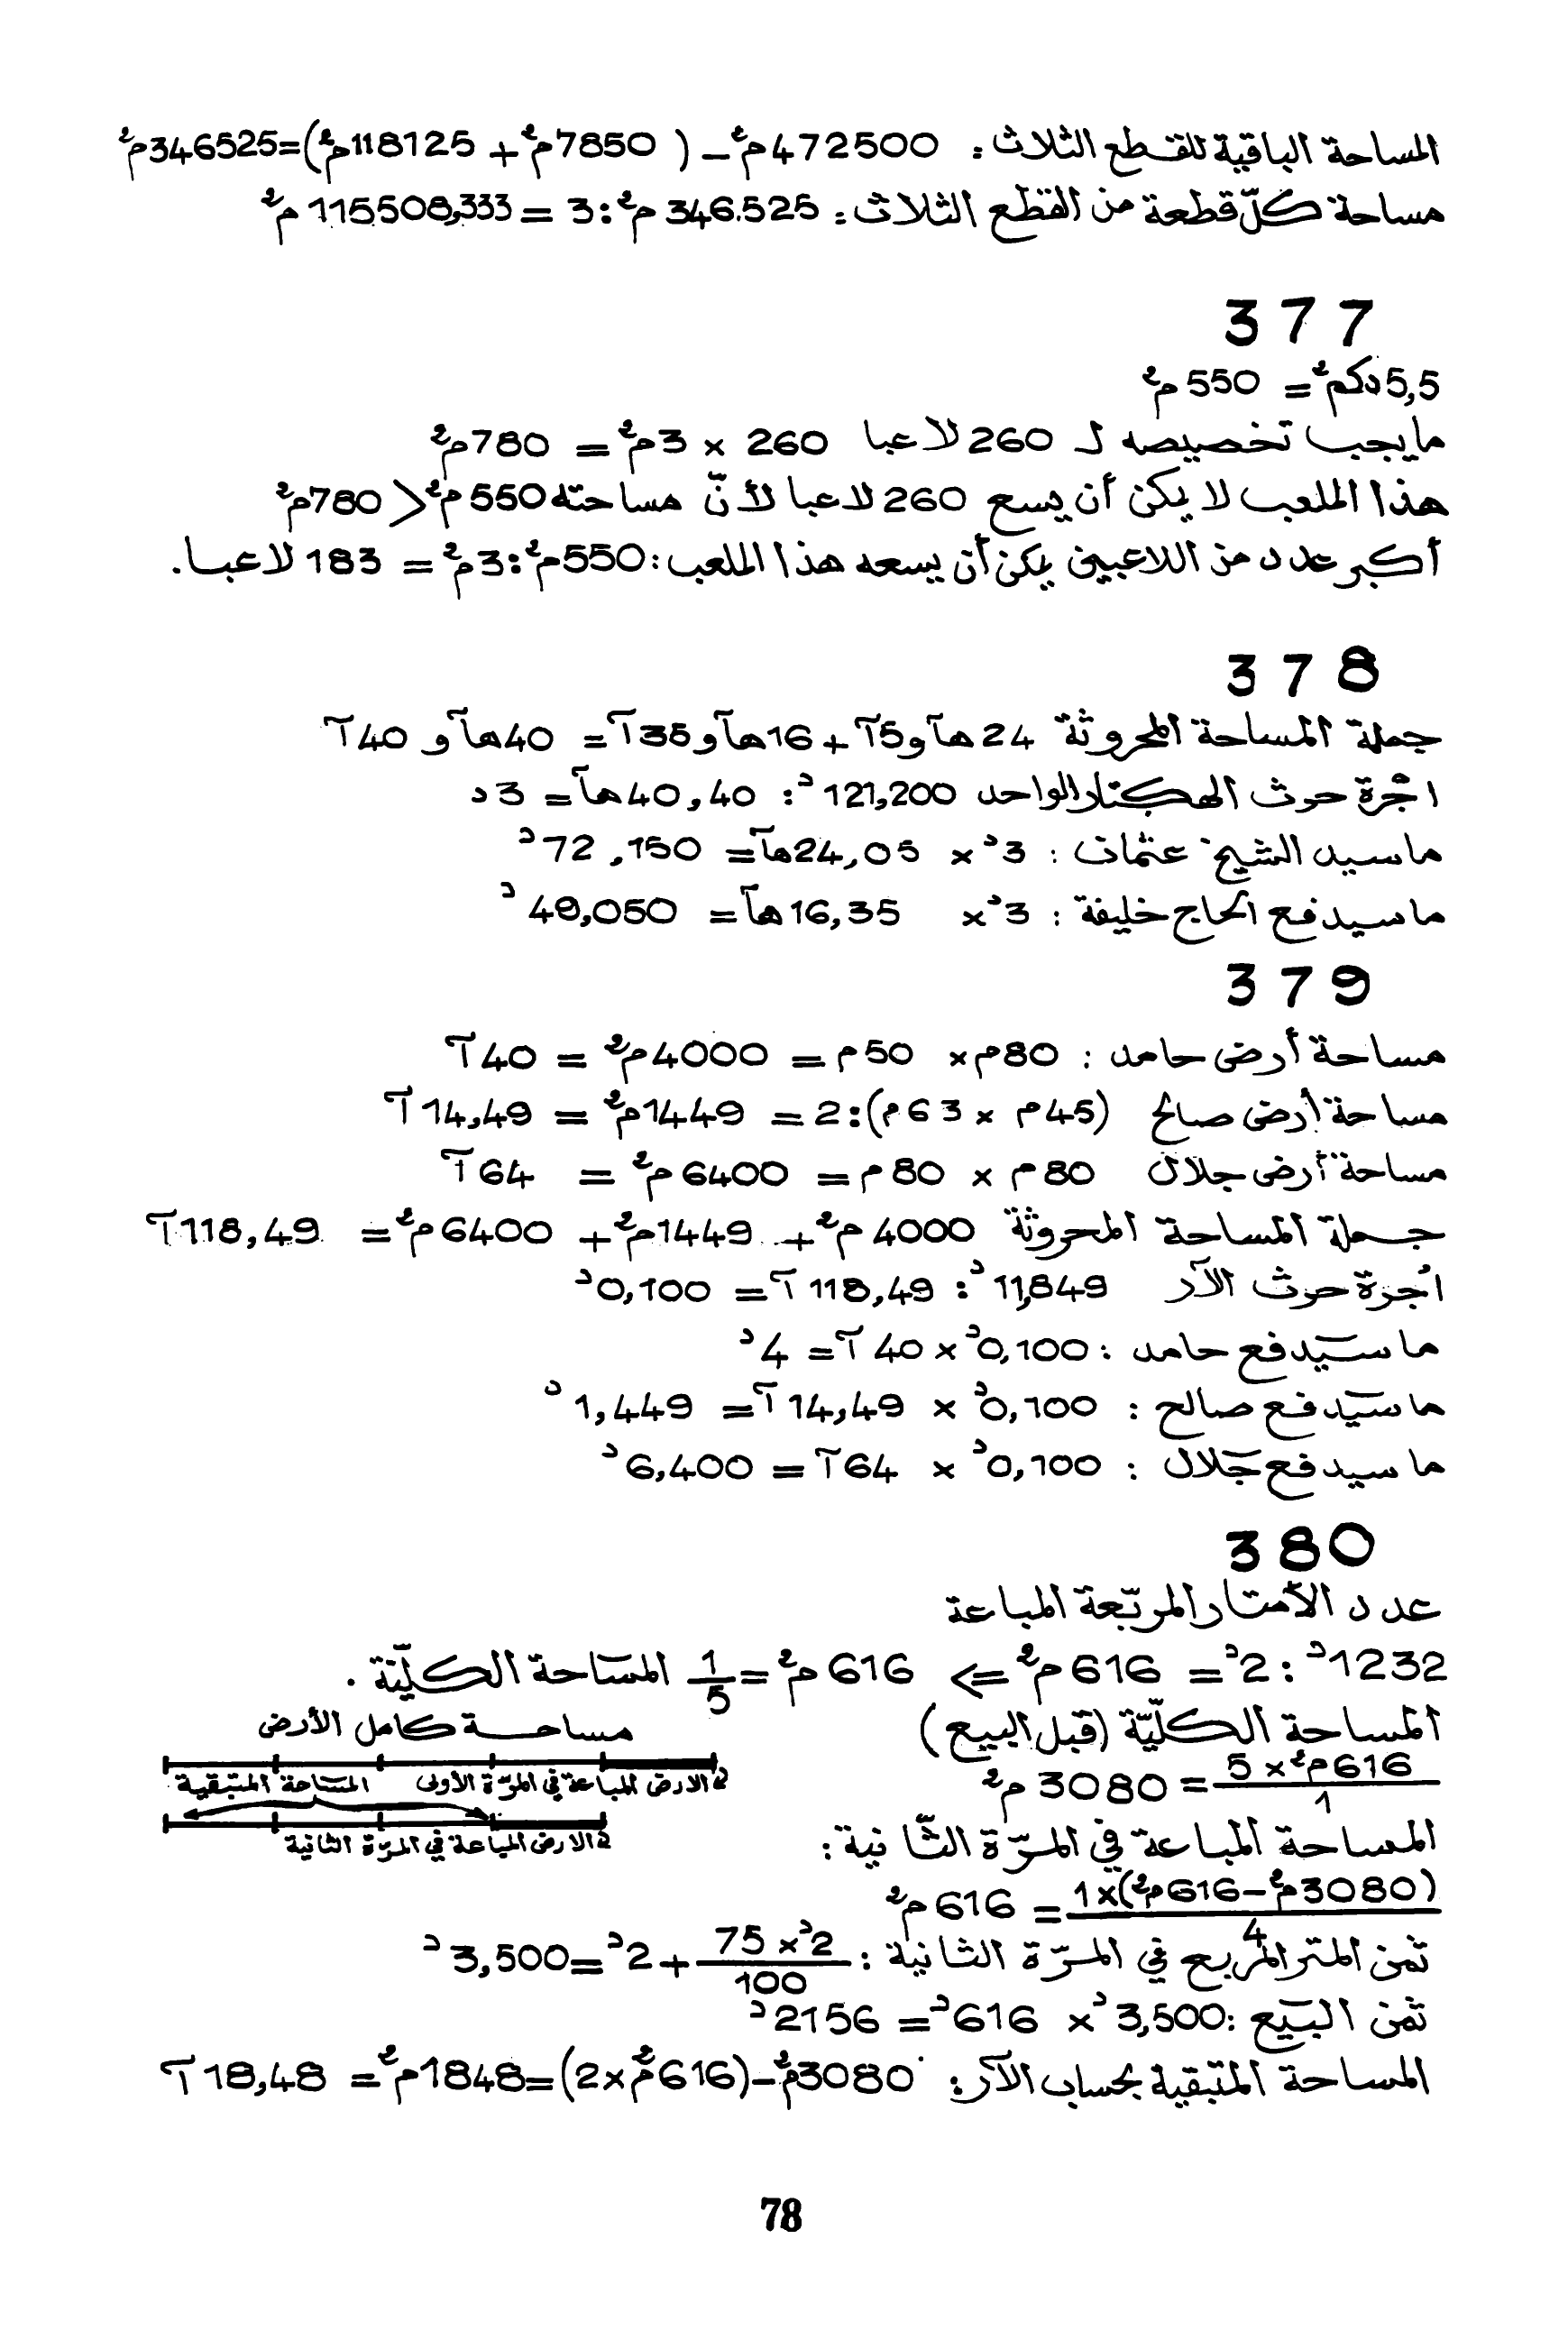 المساحة الباقية للقطع الثلاث : 472500م² - ( 7850م² + 118125م²)=346525م²
مساحة كلّ قطعة من القطع الثلاث : 346.525 م² : 3 = 115508,333 م²
377
5,5 دكم² = 550 م²
ما يجب تخصيصه لـ 260 لاعبا 260 × 3م² = 780م²
هذا الملعب لا يمكن أن يسع 260 لاعبا لأنّ مساحته 550م² < 780م²
أكبر عدد من اللاعبين يمكن أن يسعه هذا الملعب : 550م² : 3م² = 183 لاعبا.
378
جملة المساحة المحروثة 24 هآ و5آ + 16هآ و35آ = 40هآ و 40آ
اجْرة حرث الهكتار الواحد 121,200د : 40,40هآ = 3 د
ما سيد الشيخ عثمان : 3د × 24,05هآ = 72,150د
ما سيدفع الحاج خليفة : 3د × 16,35هآ = 49,050د
379
مساحة أرض حامد : 80م × 50م = 4000م² = 40آ
مساحة أرض صالح (45م × 63م):2 = 1449م² = 14,49آ
مساحة أرض جلال 80م × 80م = 6400م² = 64آ
جملة المساحة المحروثة 4000م² + 1449م² + 6400م² = 118,49آ
اجْرة حرث الآر 11,849د : 118,49آ = 0,100د
ما سيدفع حامد : 0,100د × 40آ = 4د
ما سيدفع صالح : 0,100د × 14,49آ = 1,449د
ما سيدفع جلال : 0,100د × 64آ = 6,400د
380
عدد الأمتار المربّعة المباعة
1232د : 2د = 616م² => 616م² = 1/5 المساحة الكليّة .
المساحة الكليّة (قبل البيع)
616م² × 5 / 1 = 3080م²
مساحة كامل الأرض
الأرض المباعة في المرّة الأولى المساحة المتبقية
الأرض المباعة في المرّة الثانية
المساحة المباعة في المرّة الثّانية :
(3080م²-616م²)×1 / 4 = 616م²
ثمن المتر المربع في المرّة الثانية : 2د × 75 / 100 + 2د = 3,500د
ثمن البيع : 3,500د × 616د = 2156د
المساحة المتبقية بحساب الآر : 3080م²-(616م²×2)=1848م² = 18,48آ
78